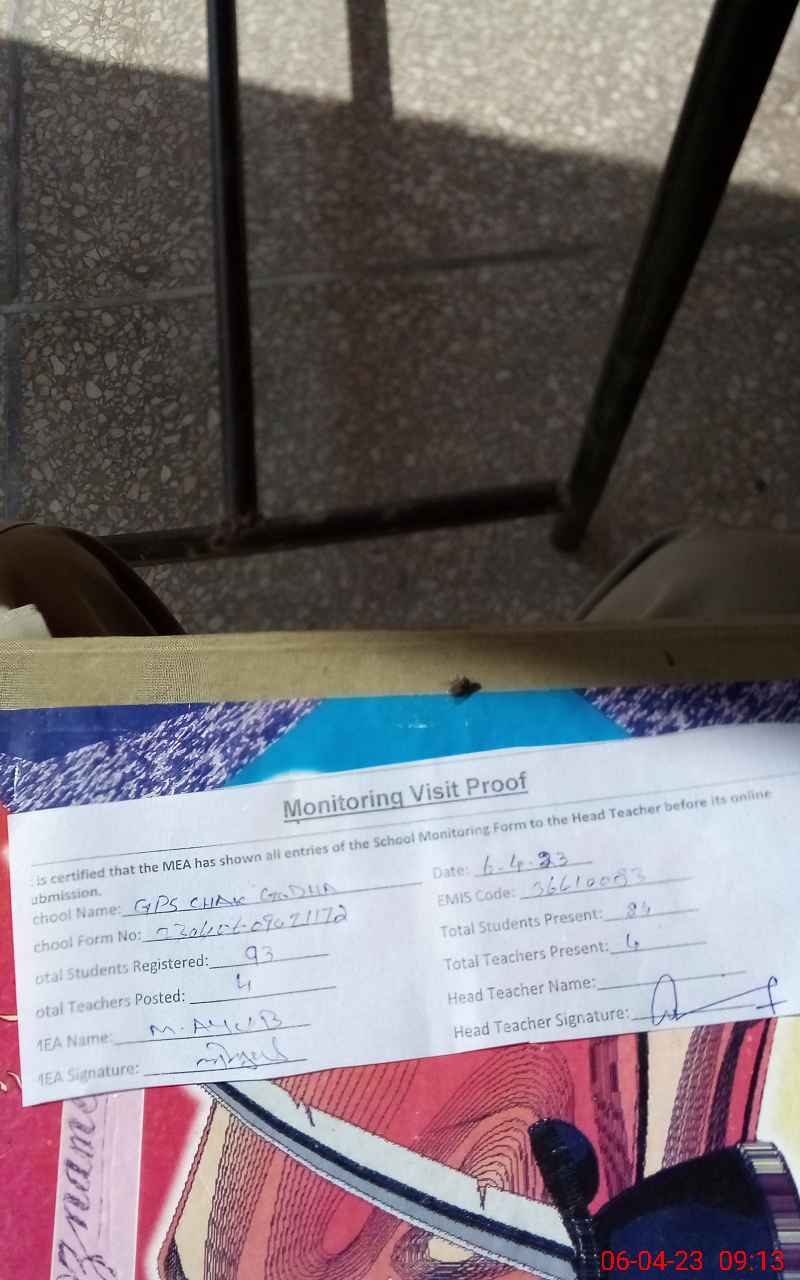 Monitoring Visit Proof
is certified that the MEA has shown all entries of the School Monitoring Form to the Head Teacher before its online
ubmission.
Date: 6-4-23
chool Name: GPS CHAK
EMIS Code:
chool Form No:
Total Students Present:
otal Students Registered: 93
Total Teachers Present: 4
otal Teachers Posted: 4
Head Teacher Name:
MEA Name: M. AYUB
Head Teacher Signature:
MEA Signature:
zname
06-04-23 09:13